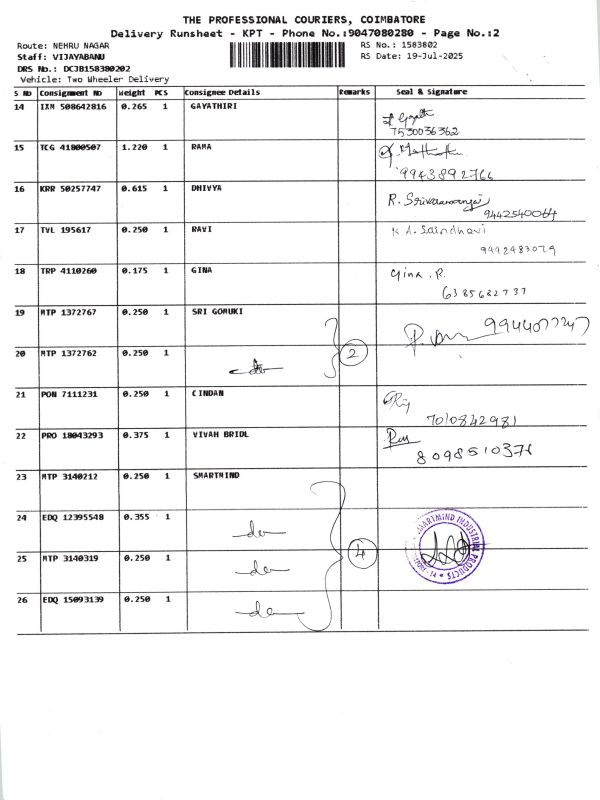 THE PROFESSIONAL COURIERS, COIMBATORE
Delivery Runsheet - KPT - Phone No.:9047080280 - Page No.:2
Route: NEHRU NAGAR RS No.: 1583802
Staff: VIJAYABANU RS Date: 19-Jul-2025
DRS No.: DCJB158380202
Vehicle: Two Wheeler Delivery
S NO Consignment No Weight PCS Consignee Details Remarks Seal & Signature
14 IXM 508642816 0.265 1 GAYATHIRI
7530036362
15 TCG 41800507 1.220 1 RAMA
9943892766
16 KRR 50257747 0.615 1 DHIVYA R.
9442540064
17 TVL 195617 0.250 1 RAVI K A. Saindhavi
9442483079
18 TRP 4110260 0.175 1 GINA Gina . R.
6385682737
19 MTP 1372767 0.250 1 SRI GOMUKI
20 MTP 1372762 0.250 1 do 2
21 PON 7111231 0.250 1 CINDAN
7010842981
22 PRO 18043293 0.375 1 VIVAH BRIDL
8098510371
23 MTP 3140212 0.250 1 SMARTMIND
24 EDQ 12395548 0.355 1 do SMARTMIND INDUSTRIAL PRODUCTS
25 MTP 3140319 0.250 1 do 4
26 EDQ 15093139 0.250 1 do